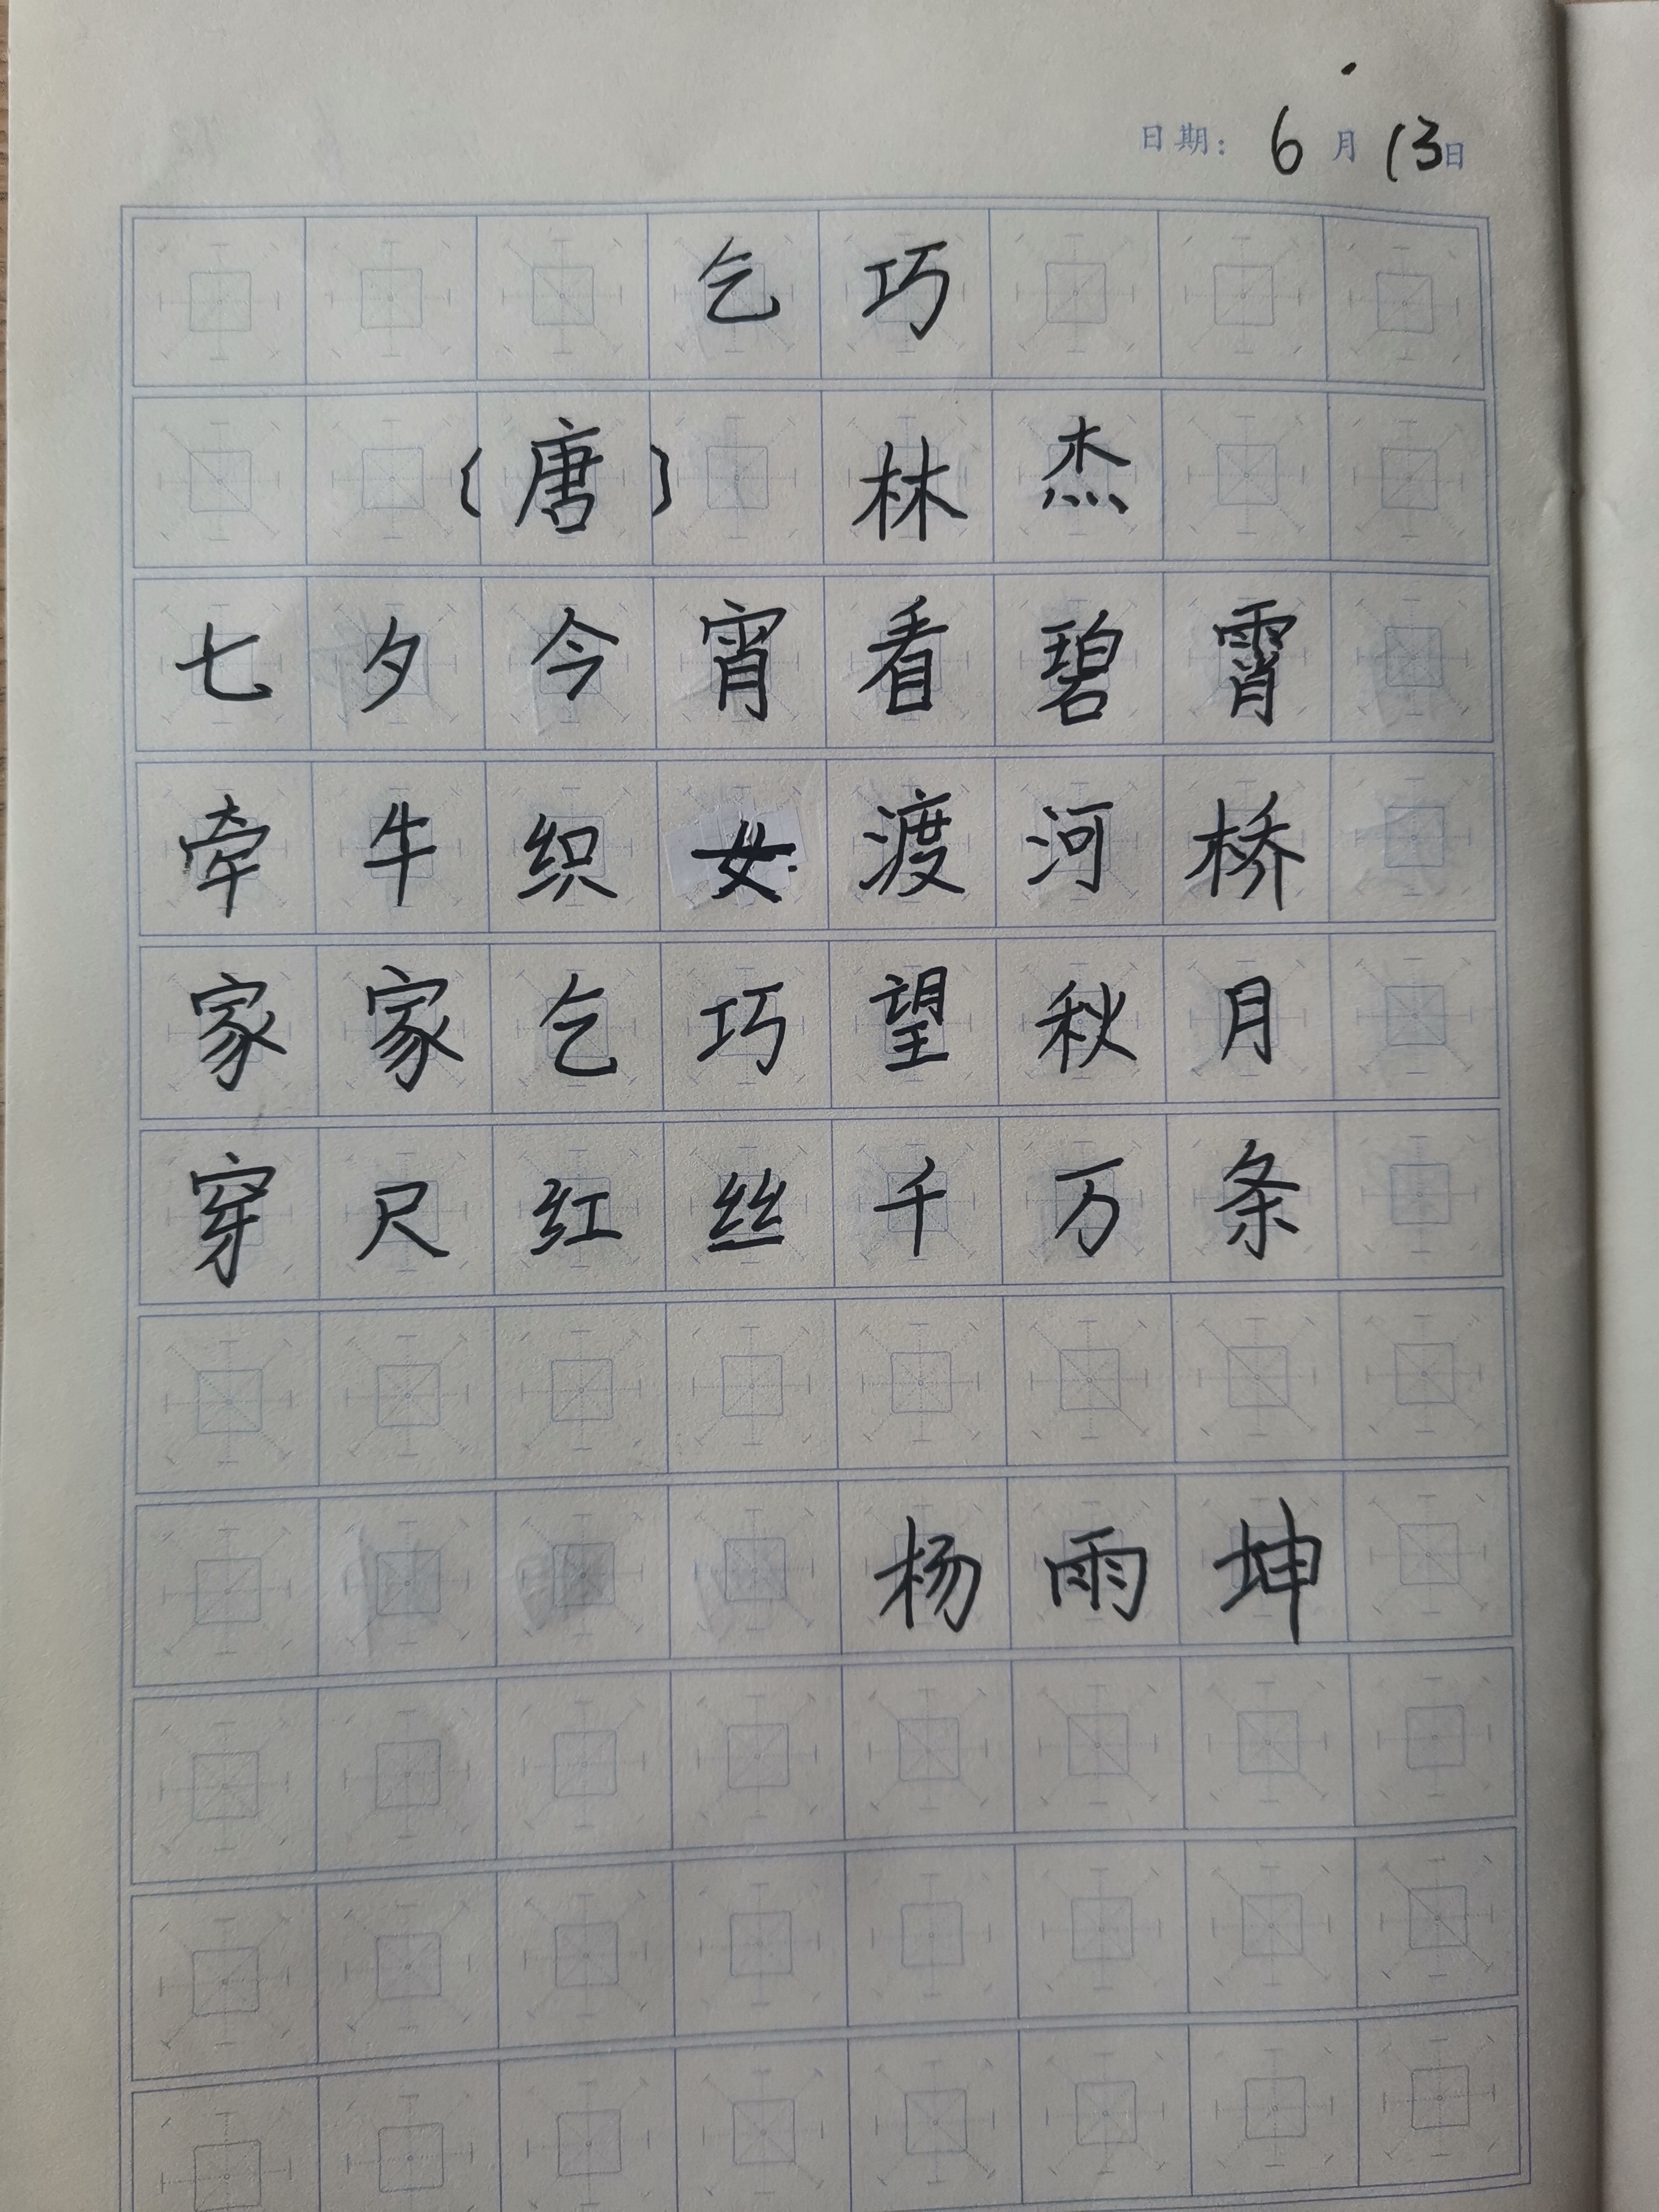 日期：6月13日
乞巧
〔唐〕 林杰
七夕今宵看碧霄
牵牛织女渡河桥
家家乞巧望秋月
穿尺红丝千万条
杨雨坤